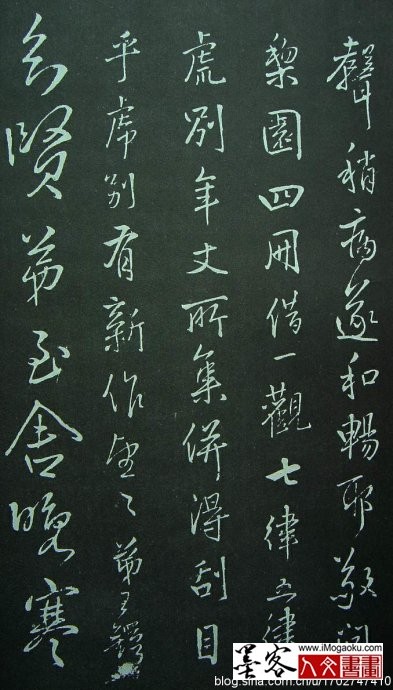 聲稍病遂和暢耶敬問
棃園四冊借一觀七律五律
虎别年丈所集併得刮目
乎虎别有新作望々弟王鐸
賢弟至舍晚寒
墨客
www.iMogaoku.com
人文書畫
blog.sina.com.cn/u/1702747410